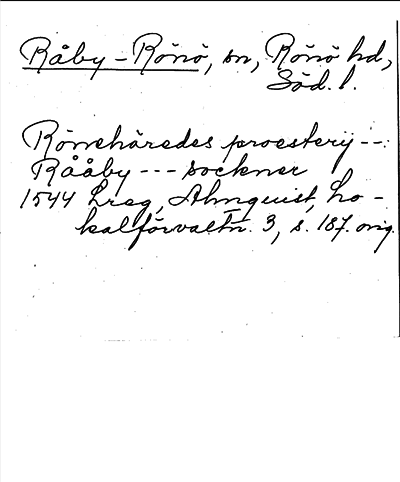 Råby-Rönö, sn, Rönö hd,
Söd. l.
Rönehäredes proesterij --:
Rååby --- sockner
1544 Lreg, Almquist, Lo-
kalförvaltn. 3, s. 187. orig.